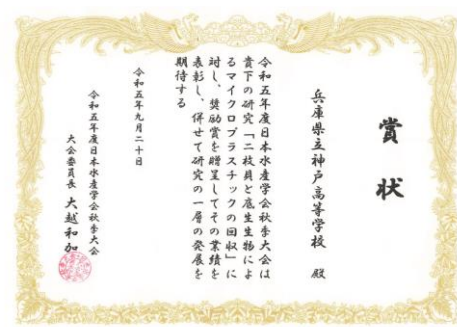 賞状
兵庫県立神戸高等学校 殿
令和五年度日本水産学会秋季大会は
貴下の研究「二枚貝と底生生物によ
るマイクロプラスチックの回収」に
対し、奨励賞を贈呈してその業績を
表彰し、併せて研究の一層の発展を
期待する
令和五年九月二十日
令和五年度日本水産学会秋季大会
大会委員長 大越和加